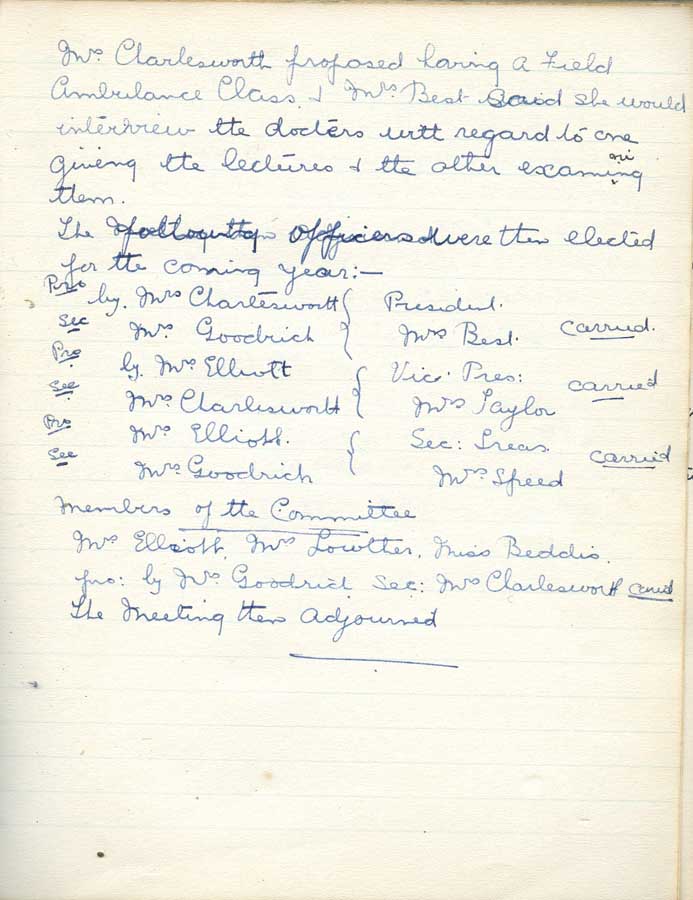 Mrs Charlesworth proposed having a Field
Ambulance Class, & Mrs Best said she would
interview the doctors with regard to one
giving the lectures & the other examining
them.
The following Officers were then elected
for the coming year:—
Pro by. Mrs Charlesworth { President.
Sec Mrs Goodrich { Mrs Best. carried.
Pro by. Mrs Elliott { Vic. Pres: carried
Sec Mrs Charlesworth { Mrs Taylor
Pro Mrs Elliott. { Sec: Treas.
Sec Mrs Goodrich { Mrs Speed carried
Members of the Committee
Mrs Elliott, Mrs Lowther, Miss Beddis.
pro: by Mrs Goodrich Sec: Mrs Charlesworth carried
The Meeting then adjourned